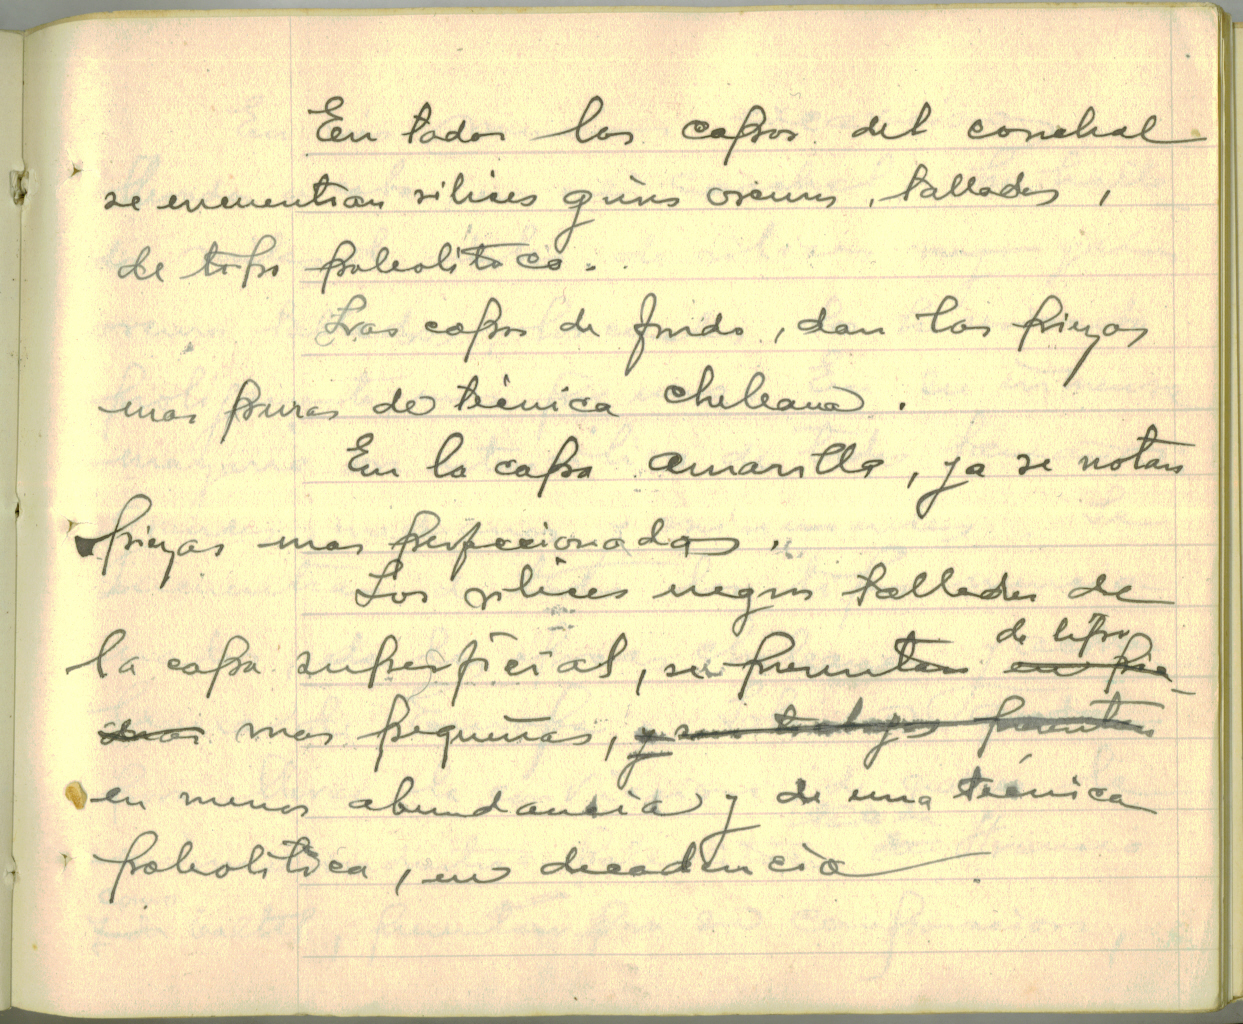 En todas las capas del conchal
se encuentran silices grises oscuros, tallados,
de tipo paleolitico.
Las capas de fondo, dan las piezas
mas puras de técnica cheleana.
En la capa amarilla, ya se notan
piezas mas perfeccionadas.
Los silices negros tallados de
la capa superficial, se presentan en pie
de tipo
mas pequeñas, y sus trabajos presentan
en menos abundancia y de una técnica
paleolitica, en decadencia.